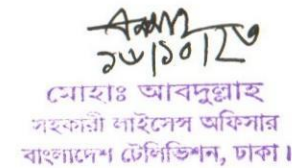 ১৬/১০/২৩
মোহাঃ আবদুল্লাহ
সহকারী লাইসেন্স অফিসার
বাংলাদেশ টেলিভিশন, ঢাকা।